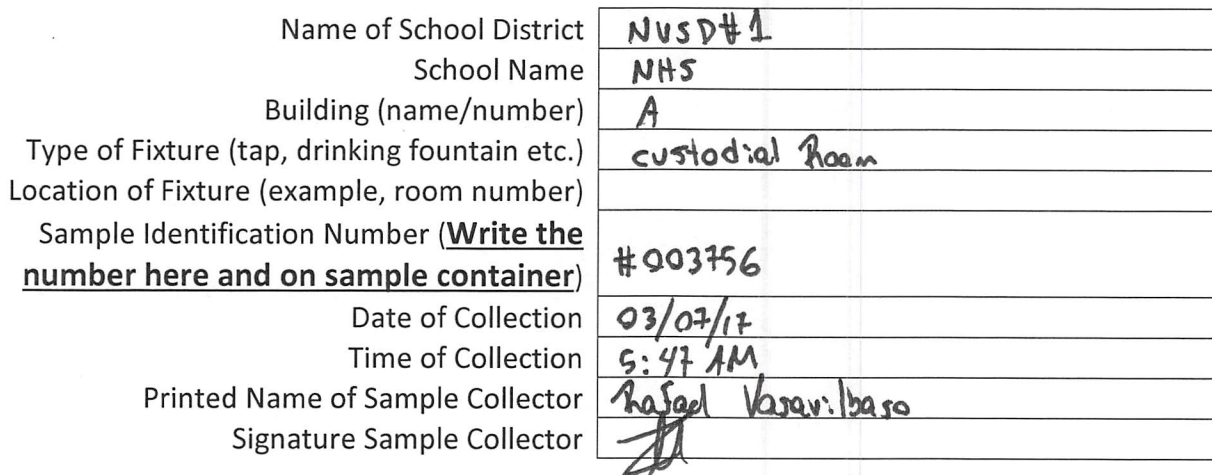 Name of School District NUSD#1
School Name NHS
Building (name/number) A
Type of Fixture (tap, drinking fountain etc.) custodial Room
Location of Fixture (example, room number)
Sample Identification Number (Write the
number here and on sample container) #003756
Date of Collection 03/07/17
Time of Collection 5:47 AM
Printed Name of Sample Collector Rafael Vasavilbaso
Signature Sample Collector